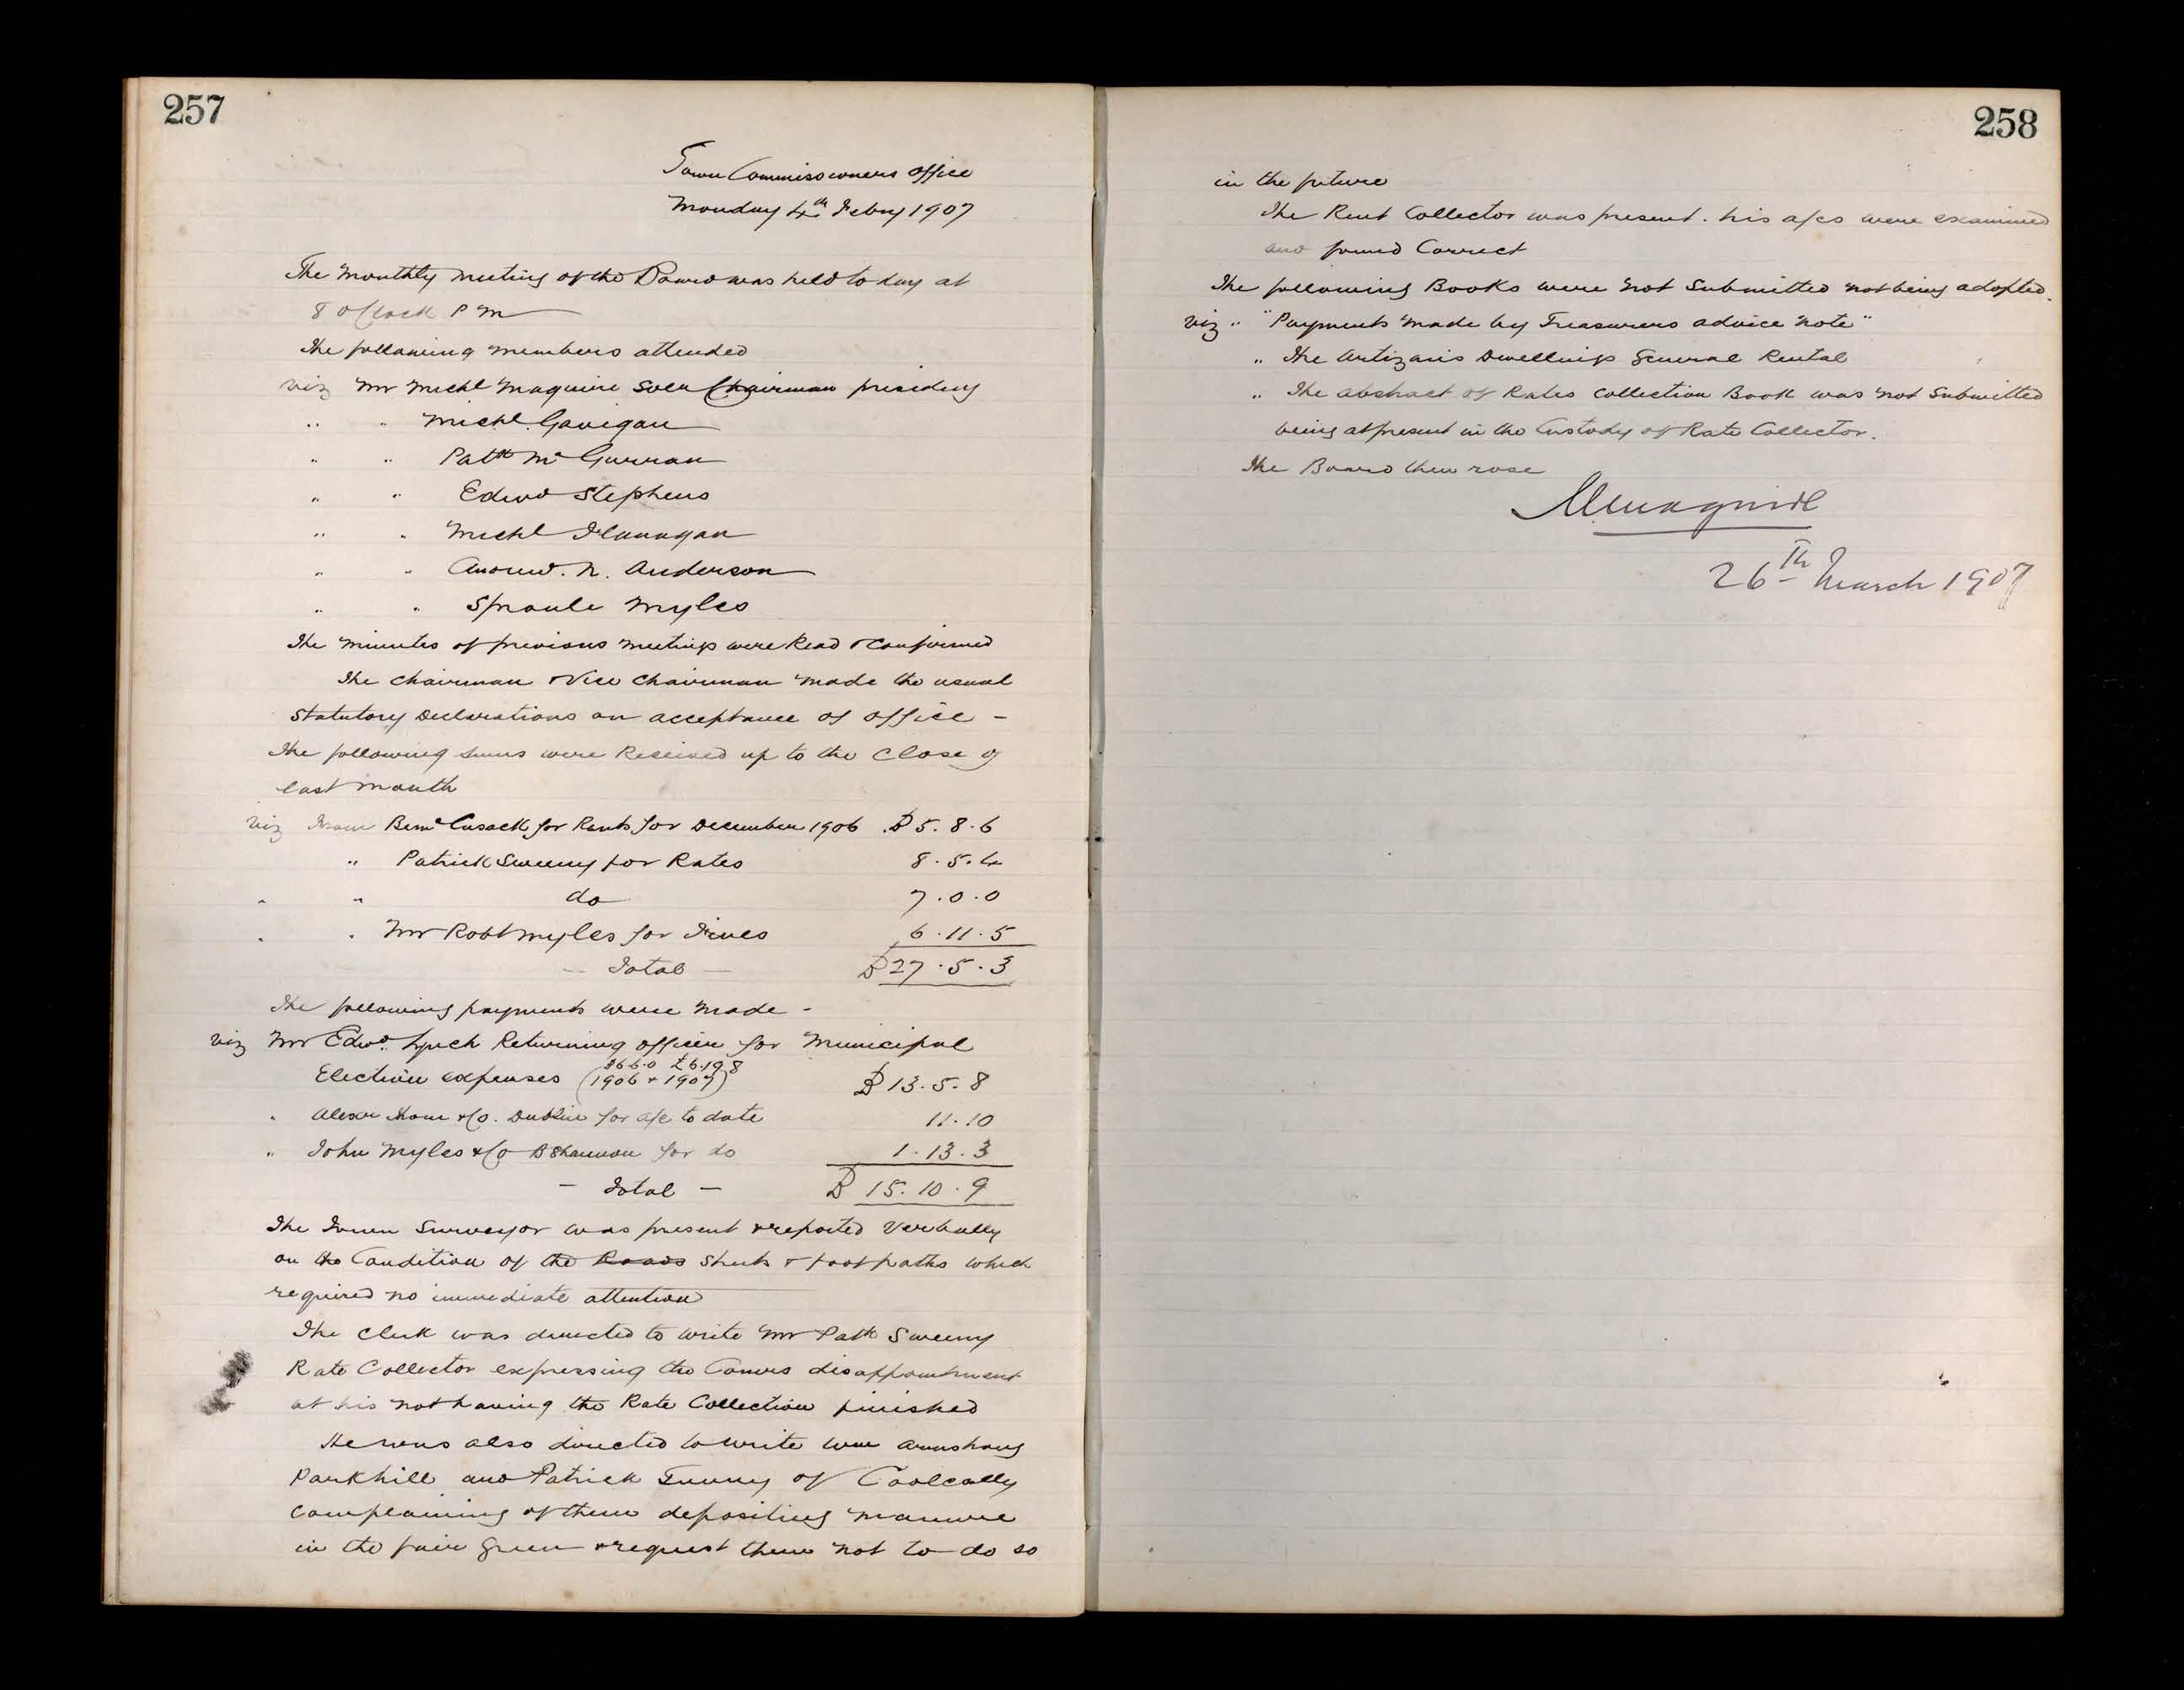 257
Town Commissowners office
Monday 4th Febry 1907
The monthly meeting of the Board was held to day at
8 oClock P M
The following members attended
viz Mr Michl Maguire Solr Chairman presiding
" " Michl. Gavigan
" " Patk Mc Gurran
" " Edwd Stephens
" " Michl Flanagan
" " Andrew. N. Anderson
" " Sproule Myles
The minutes of previous meetings were Read & Confirmed
The Chairman & Vice Chairman made the usual
Statutory Declarations on acceptance of office -
The following sums were Received up to the Close of
last month
viz From Bernd Cusack for Rents for December 1906 £5.8.6
" Patrick Sweeny for Rates 8.5.4
" " do 7.0.0
" " Mr Robt Myles for Fines 6.11.5
- Total - £27.5.3
The following payments were made -
viz Mr Edwd. Lynch Returning officer for Municipal
£6.19.8
Election expenses (1906 & 1907) £13.5.8
" Alexr Thom & Co. Dublin for a/c to date 11.10
" John Myles & Co BShannon for do 1.13.3
- Total - £15.10.9
The Town Surveyor was present & reported Verbally
on the Condition of the Roads Streets & footpaths which
required no immediate attention
The Clerk was directed to write Mr Patk Sweeny
Rate Collector expressing the Comrs disappointment
at his not having the Rate Collection finished
He was also directed to write Wm Armstrong
Parkhill and Patrick Tunny of Coolcolly
Complaining of them depositing manure
in the fair Green & request them not to do so
258
in the future
The Rent Collector was present. his a/cs were examined
and found Correct
The following Books were not Submitted not being adopted.
viz " "Payments made by Treasurers advice note"
" The Artizans Dwellings General Rental
" The abstract of Rates Collection Book was not Submitted
being at present in the Custody of Rate Collector.
The Board then rose
MMaguire
26th March 1907